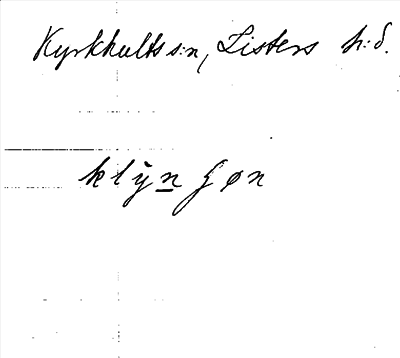 Kyrkhults s:n, Listers h:d.
klẏn̲ gøn